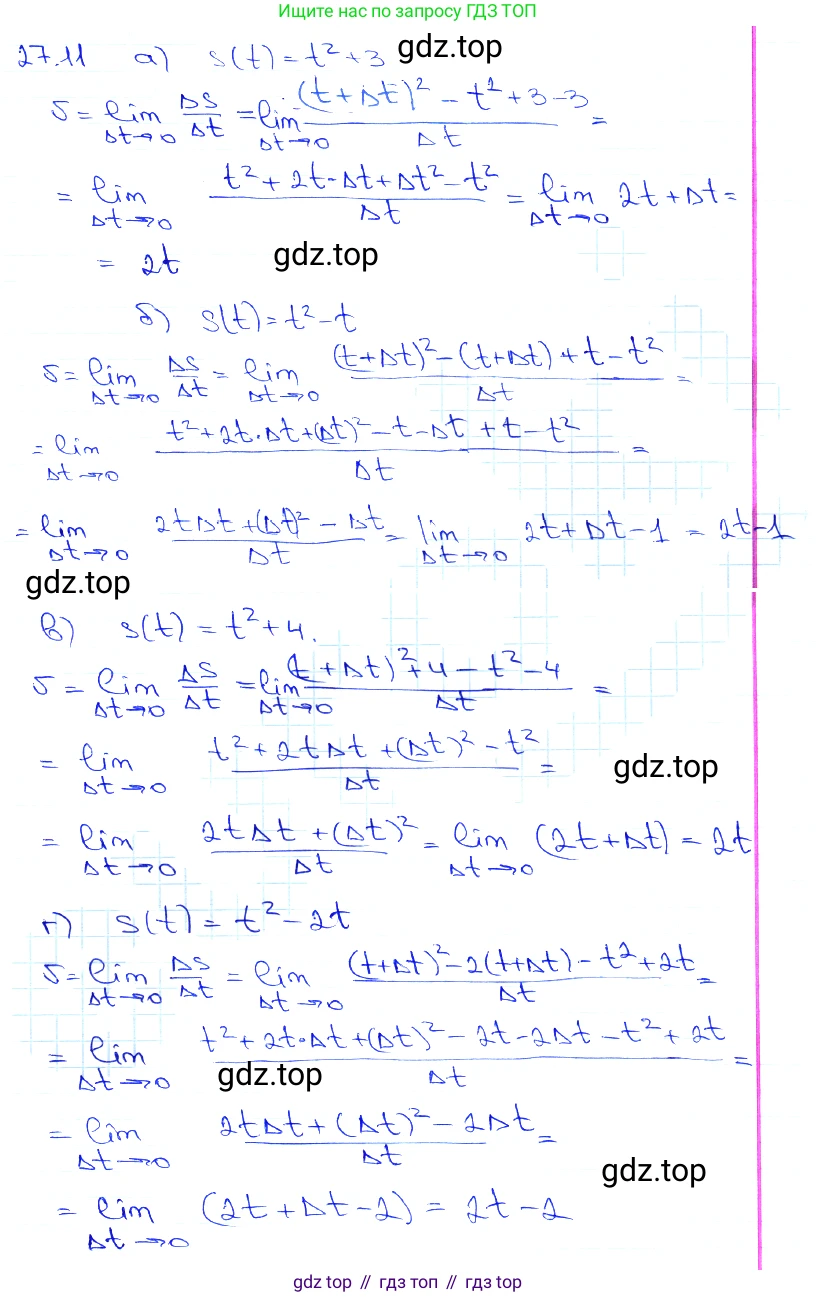 Ищите нас по запросу ГДЗ ТОП
27.11 а) s(t) = t² + 3 gdz.top
υ = lim Δt→0 ΔS/Δt = lim Δt→0 ((t + Δt)² - t² + 3 - 3)/Δt =
= lim Δt→0 (t² + 2t·Δt + Δt² - t²)/Δt = lim Δt→0 2t + Δt =
= 2t gdz.top
б) s(t) = t² - t
υ = lim Δt→0 ΔS/Δt = lim Δt→0 ((t+Δt)² - (t+Δt) + t - t²)/Δt =
= lim Δt→0 (t² + 2t·Δt + (Δt)² - t - Δt + t - t²)/Δt =
= lim Δt→0 (2tΔt + (Δt)² - Δt)/Δt = lim Δt→0 2t + Δt - 1 = 2t - 1
gdz.top
в) s(t) = t² + 4.
υ = lim Δt→0 ΔS/Δt = lim Δt→0 ((t + Δt)² + 4 - t² - 4)/Δt =
= lim Δt→0 (t² + 2tΔt + (Δt)² - t²)/Δt = gdz.top
= lim Δt→0 (2tΔt + (Δt)²)/Δt = lim Δt→0 (2t + Δt) = 2t
г) s(t) = t² - 2t
υ = lim Δt→0 ΔS/Δt = lim Δt→0 ((t+Δt)² - 2(t+Δt) - t² + 2t)/Δt =
= lim Δt→0 (t² + 2t·Δt + (Δt)² - 2t - 2Δt - t² + 2t)/Δt =
gdz.top
= lim Δt→0 (2tΔt + (Δt)² - 2Δt)/Δt =
gdz.top
= lim Δt→0 (2t + Δt - 2) = 2t - 2
gdz top // гдз топ // gdz top